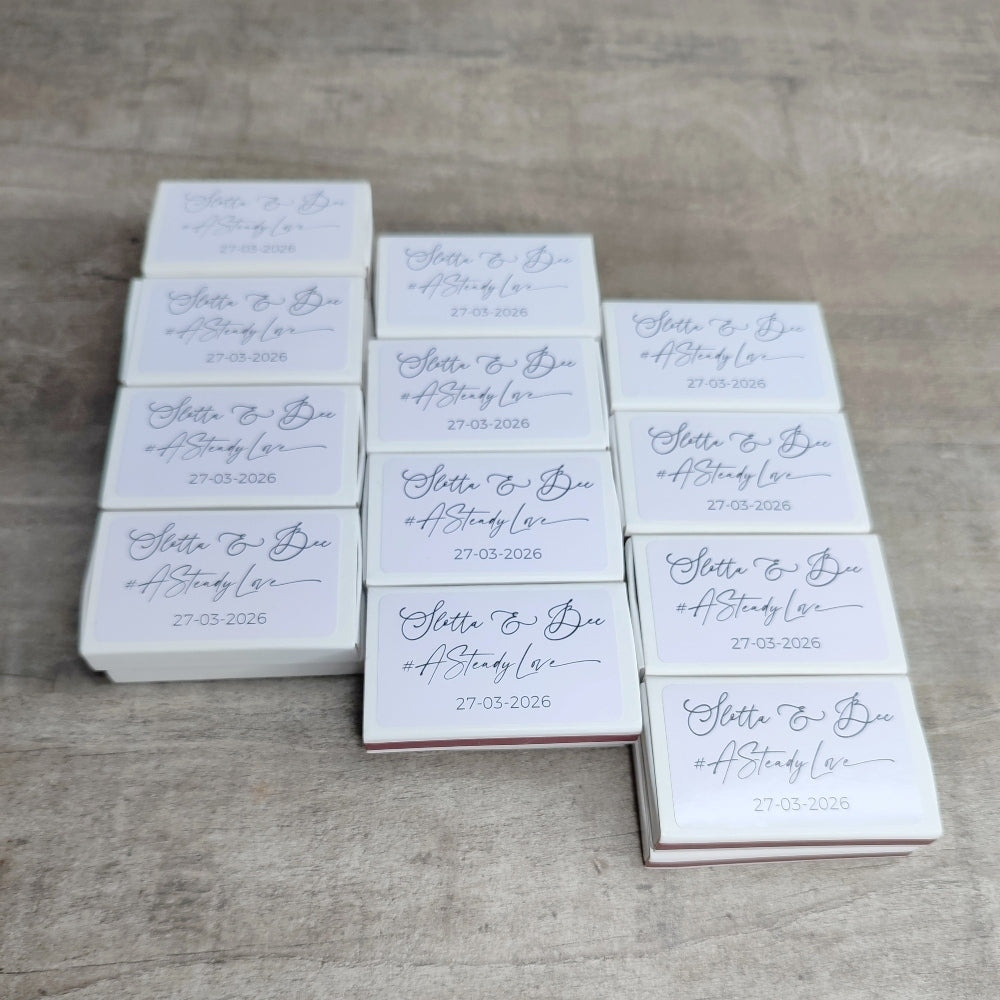 Slotta & Bee
#ASteadyLove
27-03-2026
Slotta & Bee
#ASteadyLove
27-03-2026
Slotta & Bee
#ASteadyLove
27-03-2026
Slotta & Bee
#ASteadyLove
27-03-2026
Slotta & Bee
#ASteadyLove
27-03-2026
Slotta & Bee
#ASteadyLove
27-03-2026
Slotta & Bee
#ASteadyLove
27-03-2026
Slotta & Bee
#ASteadyLove
27-03-2026
Slotta & Bee
#ASteadyLove
27-03-2026
Slotta & Bee
#ASteadyLove
27-03-2026
Slotta & Bee
#ASteadyLove
27-03-2026
Slotta & Bee
#ASteadyLove
27-03-2026